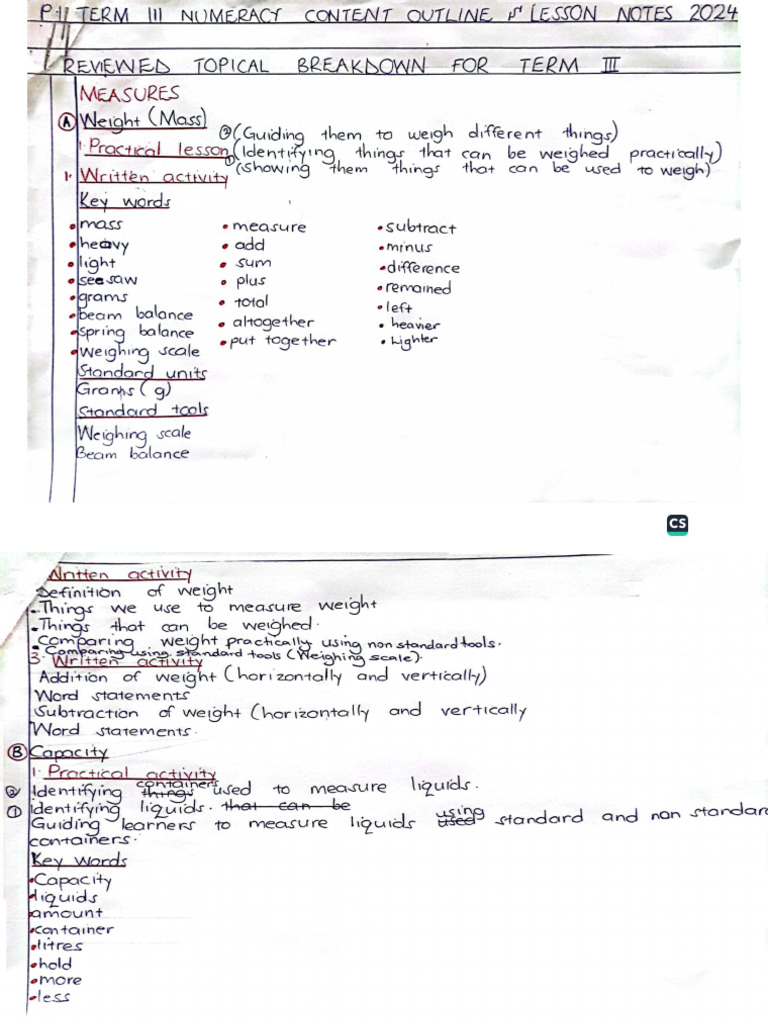 P.1 TERM III NUMERACY CONTENT OUTLINE & LESSON NOTES 2024
REVIEWED TOPICAL BREAKDOWN FOR TERM III
MEASURES
A Weight (Mass)
② (Guiding them to weigh different things)
1. Practical lesson ① (Identifying things that can be weighed practically)
(showing them things that can be used to weigh)
1. Written activity
Key words
• mass • measure • subtract
• heavy • add • minus
• light • sum • difference
• seesaw • plus • remained
• grams • total • left
• beam balance • altogether • heavier
• spring balance • put together • Lighter
• weighing scale
Standard units
Grams (g)
Standard tools
Weighing scale
Beam balance
CS
Written activity
Definition of weight
• Things we use to measure weight
• Things that can be weighed.
• Comparing weight practically using non standard tools.
• Comparing using standard tools (Weighing scale).
3. Written activity
Addition of weight (horizontally and vertically)
Word statements
Subtraction of weight (horizontally and vertically
Word statements.
B Capacity
1. Practical activity
② Identifying things containers used to measure liquids.
① Identifying liquids. that can be
Guiding learners to measure liquids used using standard and non standard
containers.
Key words
• Capacity
• liquids
• amount
• container
• litres
• hold
• more
• less